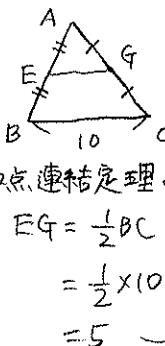 A
E
G
B
10
C
点連結定理
EG = 1/2 BC
= 1/2 × 10
= 5